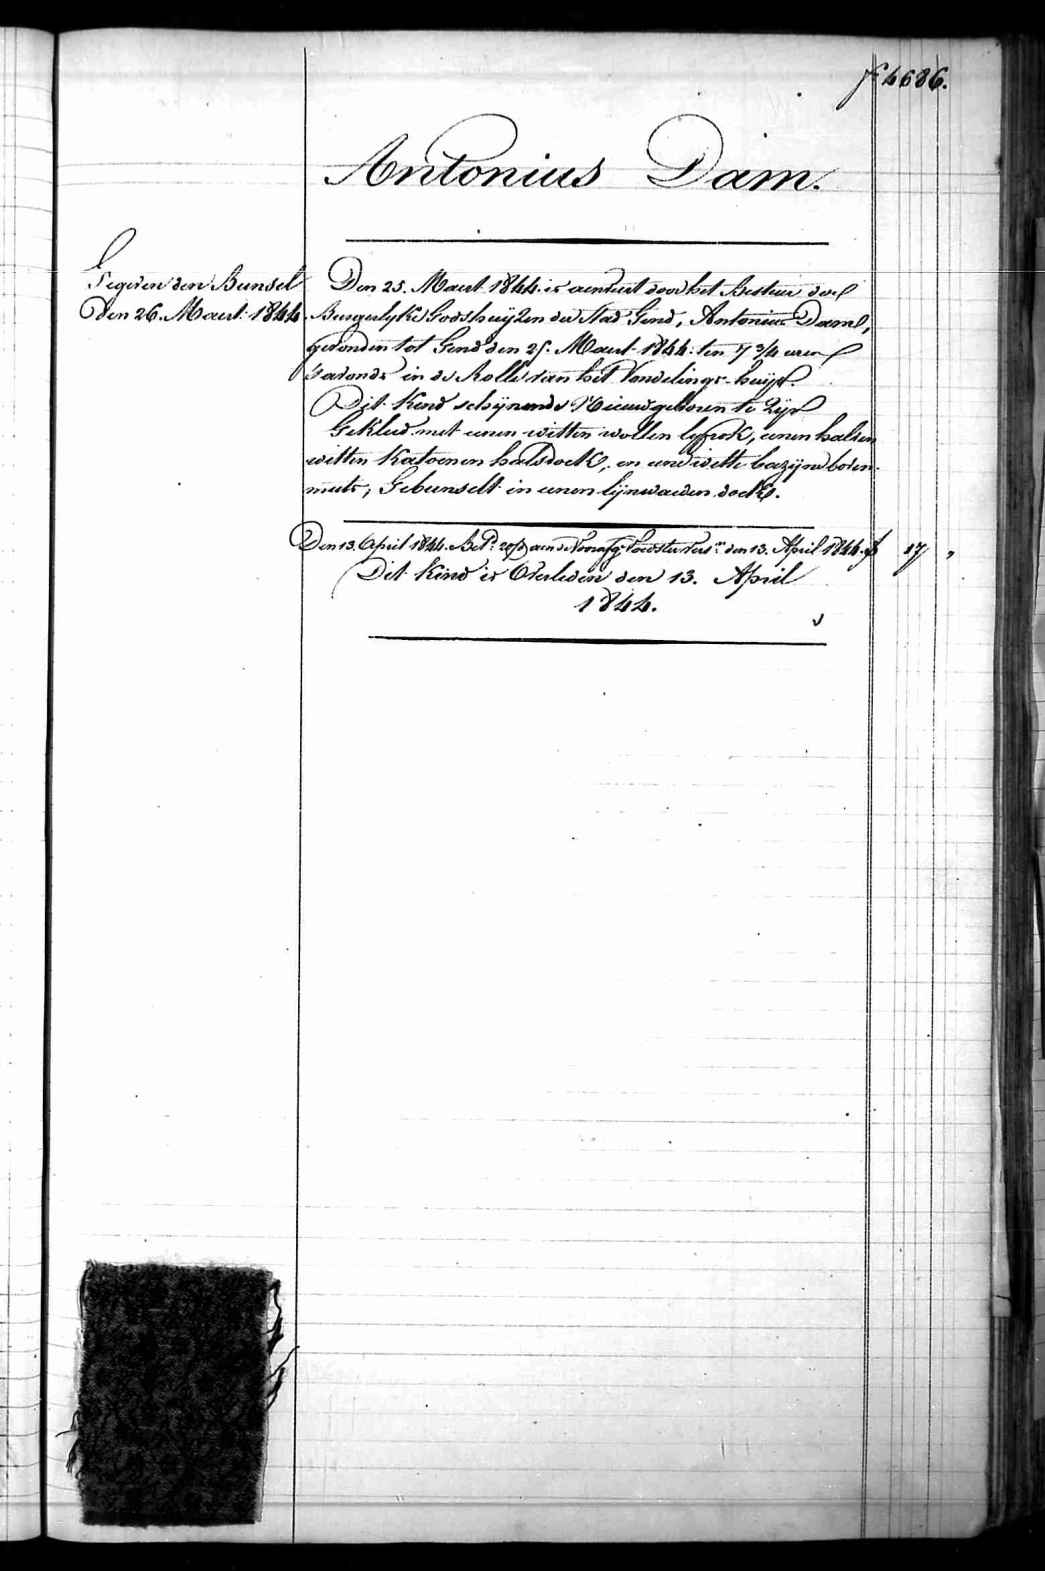 fo 4686.
Antonius Dam.
Gegeven den Bunsel
Den 26. Maert 1844.
Den 25. Maert 1844. is aenveert door het Bestier der
Burgerlyke Godshuijzen der Stad Gend, Antonius Dam,
gevonden tot Gend den 25. Maert 1844. ten 7 3/4 uren
s'avonds in de Rolle van het Vondelings-huijs.
Dit Kind schijnende Nieuwgeboren te zijn
Gekleed met eenen witten wollen lyfrok, eenen halven
witten katoenen halsdoek, en eene witte bazijne boven
muts, Gebunselt in eenen lijnwaeden doek.
Den 13. April 1844. Bet. aen de Voedster den 13. April 1844. f 17 "
Dit Kind is Overleden den 13. April
1844.